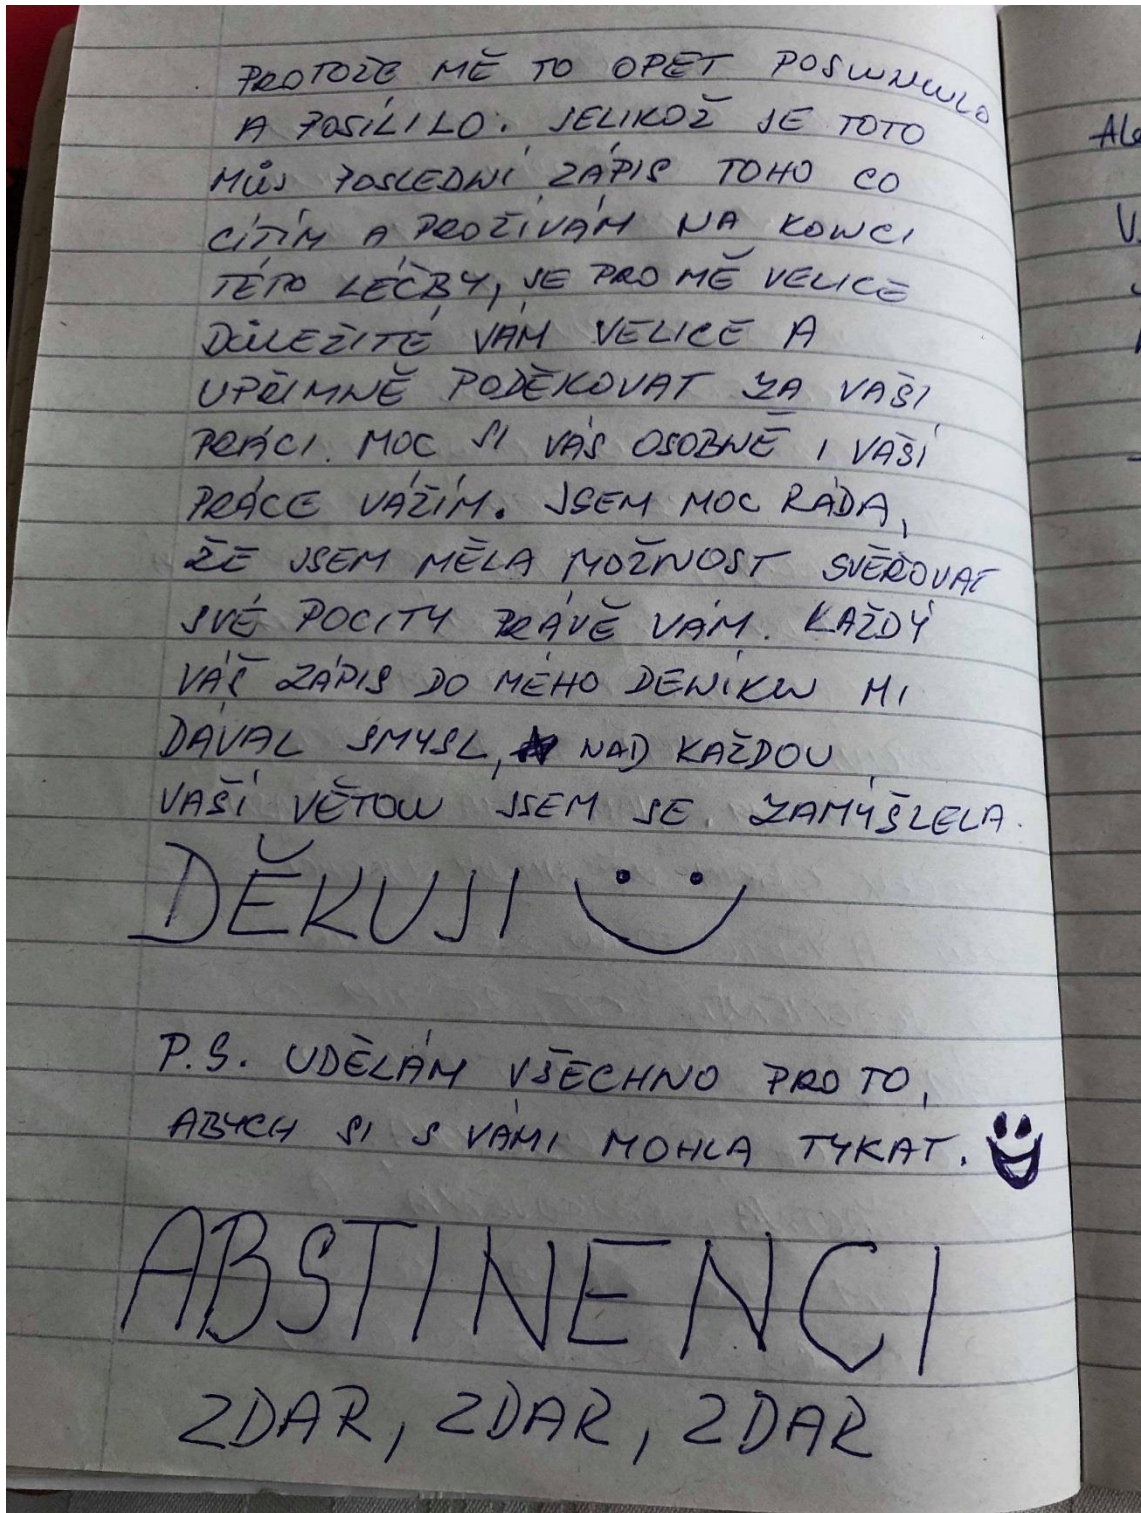 PROTOŽE MĚ TO OPĚT POSUNULO
A POSÍLILO. JELIKOŽ JE TOTO
MŮJ POSLEDNÍ ZÁPIS TOHO CO
CÍTÍM A PROŽÍVÁM NA KONCI
TÉTO LÉČBY, JE PRO MĚ VELICE
DŮLEŽITÉ VÁM VELICE A
UPŘÍMNĚ PODĚKOVAT ZA VAŠI
PRÁCI. MOC SI VÁS OSOBNĚ I VAŠÍ
PRÁCE VÁŽÍM. JSEM MOC RÁDA,
ŽE JSEM MĚLA MOŽNOST SVĚŘOVAT
SVÉ POCITY PRÁVĚ VÁM. KAŽDÝ
VÁŠ ZÁPIS DO MÉHO DENÍKU MI
DÁVAL SMYSL, NAD KAŽDOU
VAŠÍ VĚTOU JSEM SE ZAMÝŠLELA.
DĚKUJI
P.S. UDĚLÁM VŠECHNO PRO TO,
ABYCH SI S VÁMI MOHLA TYKAT.
ABSTINENCI
ZDAR, ZDAR, ZDAR